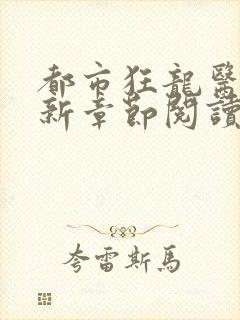 都市狂龍醫
新章節閱讀
夸雷斯馬